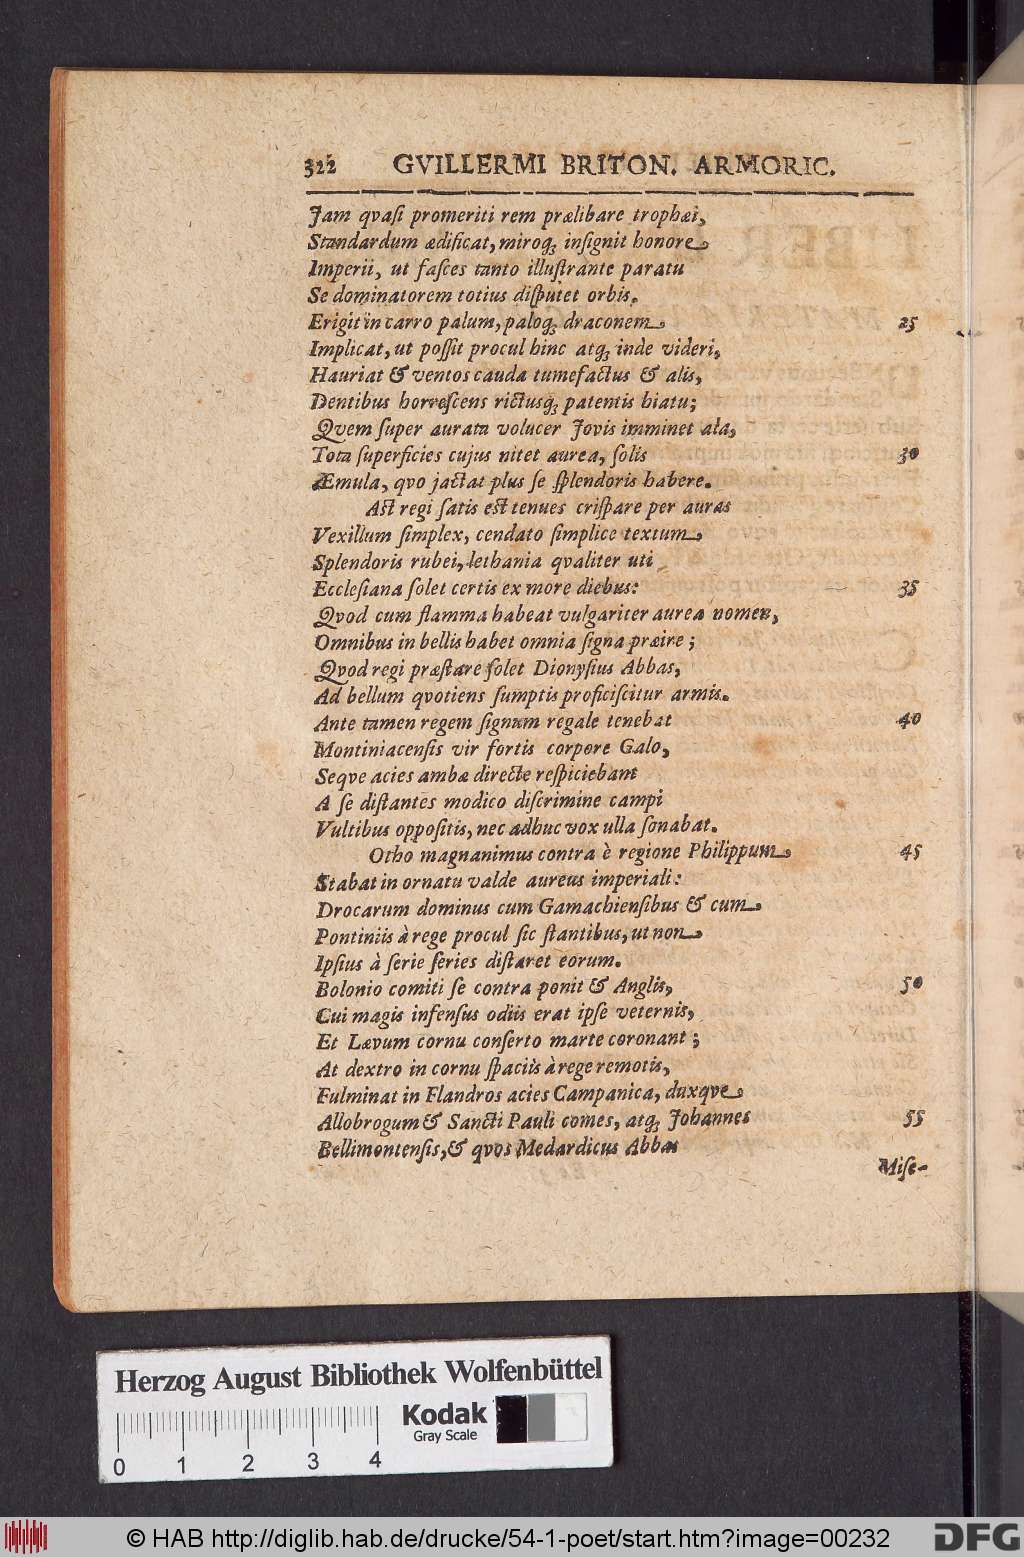 322 GVILLERMI BRITON. ARMORIC.
Jam qvaſi promeriti rem prælibare trophæi,
Standardum ædificat, miroq; inſignit honore
Imperii, ut faſces tanto illuſtrante paratu
Se dominatorem totius diſputet orbis.
Erigit in carro palum, paloq; draconem 25
Implicat, ut poſſit procul hinc atq; inde videri,
Hauriat & ventos cauda tumefactus & alis,
Dentibus horreſcens rictusq; patentis hiatu;
Qvem ſuper aurata volucer Jovis imminet ala,
Tota ſuperficies cujus nitet aurea, ſolis 30
Æmula, qvo jactat plus ſe ſplendoris habere.
Aſt regi ſatis eſt tenues criſpare per auras
Vexillum ſimplex, cendato ſimplice textum,
Splendoris rubei, lethania qvaliter uti
Eccleſiana ſolet certis ex more diebus: 35
Qvod cum flamma habeat vulgariter aurea nomen,
Omnibus in bellis habet omnia ſigna præire;
Qvod regi præſtare ſolet Dionyſius Abbas,
Ad bellum qvotiens ſumptis proficiſcitur armis.
Ante tamen regem ſignum regale tenebat 40
Montiniacenſis vir fortis corpore Galo,
Seqve acies ambæ directe reſpiciebant
A ſe diſtantes modico diſcrimine campi
Vultibus oppoſitis, nec adhuc vox ulla ſonabat.
Otho magnanimus contra è regione Philippum 45
Stabat in ornatu valde aureus imperiali:
Drocarum dominus cum Gamachienſibus & cum
Pontiniis à rege procul ſic ſtantibus, ut non
Ipſius à ſerie ſeries diſtaret eorum.
Bolonio comiti ſe contra ponit & Anglis, 50
Cui magis infenſus odiis erat ipſe veternis,
Et Lævum cornu conſerto marte coronant;
At dextro in cornu ſpaciis à rege remotis,
Fulminat in Flandros acies Campanica, duxqve
Allobrogum & Sancti Pauli comes, atq; Johannes 55
Bellimontenſis, & qvos Medardicus Abbas
Miſe-
Herzog August Bibliothek Wolfenbüttel
Kodak
Gray Scale
0 1 2 3 4
© HAB http://diglib.hab.de/drucke/54-1-poet/start.htm?image=00232
DFG